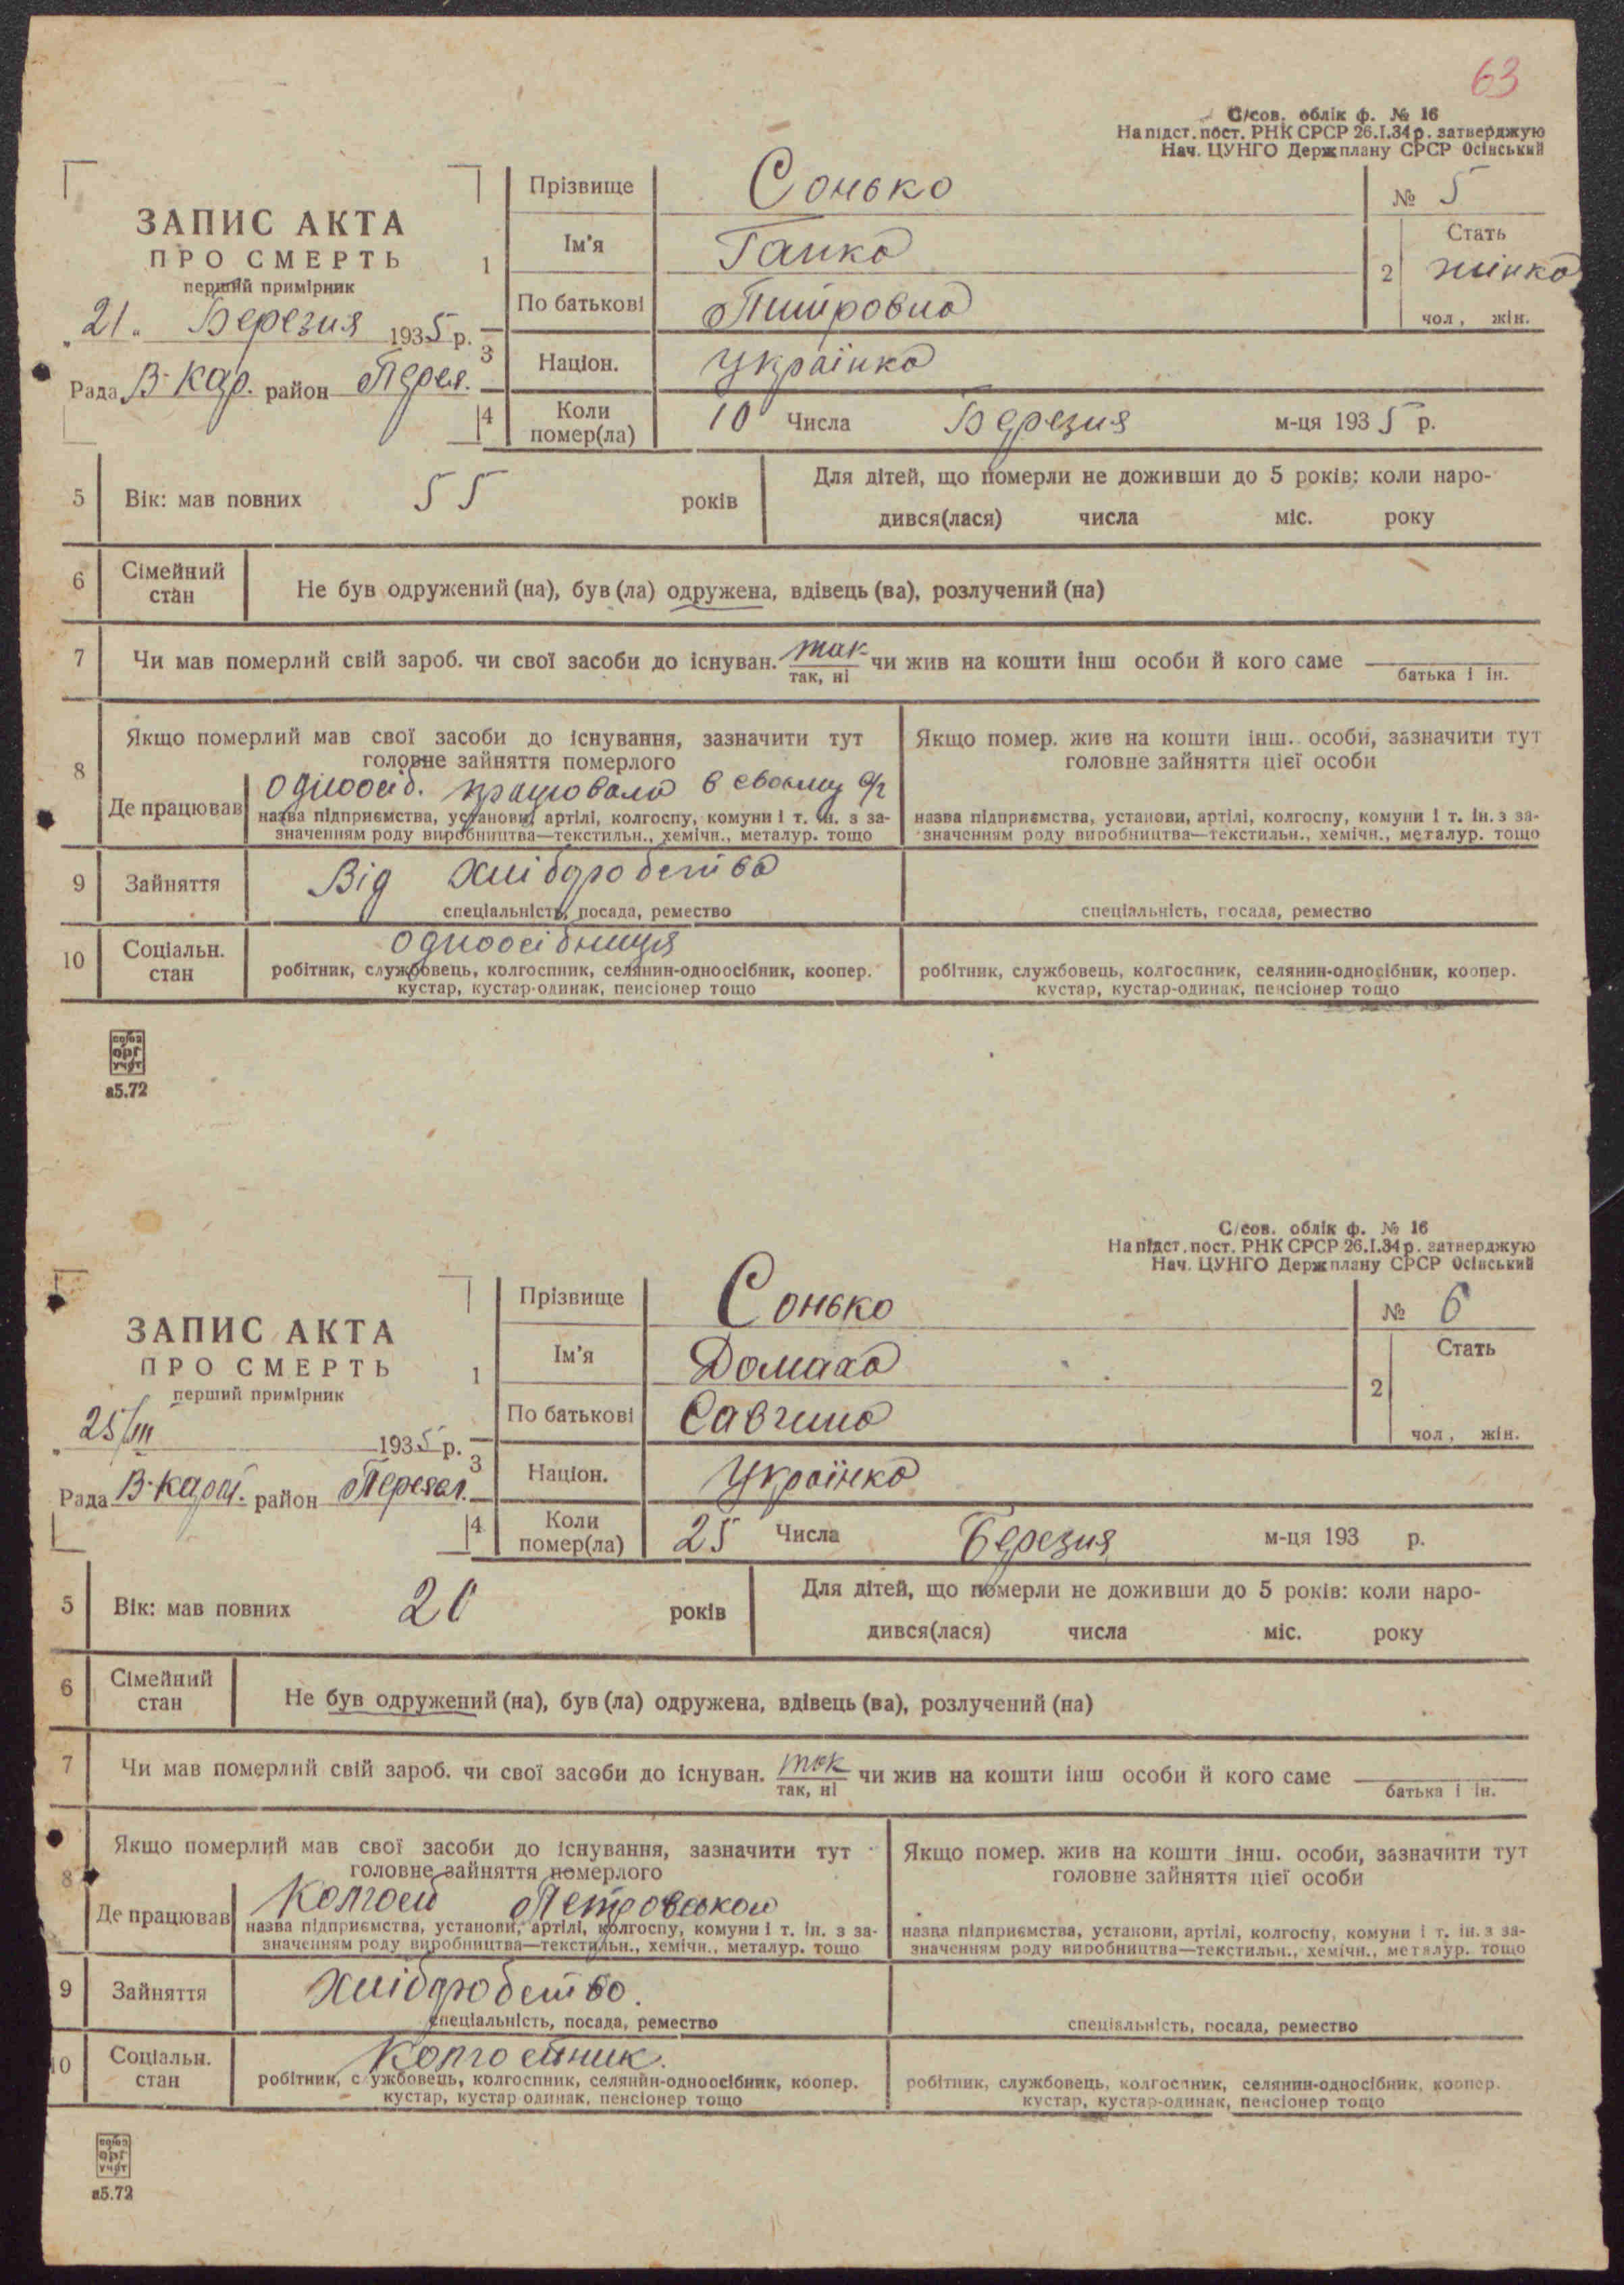 63
С/сов. облік ф. № 16
На підст. пост. РНК СРСР 26.I.34 р. затверджую
Нач. ЦУНГО Держплану СРСР Осінський
ЗАПИС АКТА
ПРО СМЕРТЬ
перший примірник
„21" Березня 1935 р.
Рада В-Кар. район Переял.
1
Прізвище Сонько
Ім'я Ганка
По батькові
№ 5
2 Стать
жінка
чол., жін.
3 Націон. Українка
4 Коли помер(ла) 10 Числа Березня м-ця 1935 р.
5 Вік: мав повних 55 років
Для дітей, що померли не доживши до 5 років: коли наро-
дився(лася) числа міс. року
6 Сімейний стан
Не був одружений (на), був (ла) одружена, вдівець (ва), розлучений (на)
7 Чи мав померлий свій зароб. чи свої засоби до існуван. так чи жив на кошти інш особи й кого саме
так, ні
батька і ін.
8 Якщо померлий мав свої засоби до існування, зазначити тут
головне зайняття померлого
Де працював одноосіб. працювала в своєму
назва підприємства, установи, артілі, колгоспу, комуни і т. ін. з за-
значенням роду виробництва—текстильн., хемічн., металур. тощо
Якщо помер. жив на кошти інш. особи, зазначити тут
головне зайняття цієї особи
назва підприємства, установи, артілі, колгоспу, комуни і т. ін. з за-
значенням роду виробництва—текстильн., хемічн., металур. тощо
9 Зайняття Від хліборобства
спеціальність, посада, ремество
спеціальність, посада, ремество
10 Соціальн. стан одноосібниця
робітник, службовець, колгоспник, селянин-одноосібник, коопер.
кустар, кустар-одинак, пенсіонер тощо
робітник, службовець, колгоспник, селянин-односібник, коопер.
кустар, кустар-одинак, пенсіонер тощо
союз
орг
учёт
а5.72
С/сов. облік ф. № 16
На підст. пост. РНК СРСР 26.I.34 р. затверджую
Нач. ЦУНГО Держплану СРСР Осінський
ЗАПИС АКТА
ПРО СМЕРТЬ
перший примірник
„25/III 1935 р.
Рада В-Карат. район Переял.
1
Прізвище Сонько
Ім'я Домаха
По батькові Савчина
№ 6
2 Стать
чол., жін.
3 Націон. Українка
4 Коли помер(ла) 25 Числа Березня м-ця 193 р.
5 Вік: мав повних 20 років
Для дітей, що померли не доживши до 5 років: коли наро-
дився(лася) числа міс. року
6 Сімейний стан
Не був одружений (на), був (ла) одружена, вдівець (ва), розлучений (на)
7 Чи мав померлий свій зароб. чи свої засоби до існуван. так чи жив на кошти інш особи й кого саме
так, ні
батька і ін.
8 Якщо померлий мав свої засоби до існування, зазначити тут
головне зайняття померлого
Де працював Колгосп
назва підприємства, установи, артілі, колгоспу, комуни і т. ін. з за-
значенням роду виробництва—текстильн., хемічн., металур. тощо
Якщо помер. жив на кошти інш. особи, зазначити тут
головне зайняття цієї особи
назва підприємства, установи, артілі, колгоспу, комуни і т. ін. з за-
значенням роду виробництва—текстильн., хемічн., металур. тощо
9 Зайняття хліборобство.
спеціальність, посада, ремество
спеціальність, посада, ремество
10 Соціальн. стан Колгоспник.
робітник, службовець, колгоспник, селянин-одноосібник, коопер.
кустар, кустар одинак, пенсіонер тощо
робітник, службовець, колгоспник, селянин-односібник, коопер.
кустар, кустар-одинак, пенсіонер тощо
союз
орг
учёт
а5.72